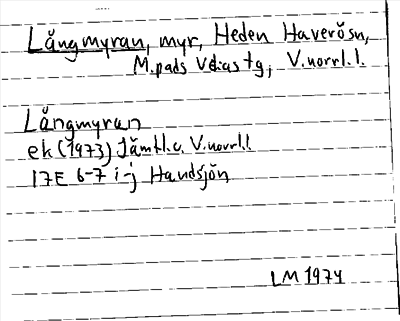 Långmyran, myr, Heden Haverösn,
M.pads V d:as tg, V.norrl.l.
Långmyran
ek (1973) Jämtl.o. V.norrl.l.
17E 6-7 i-j Handsjön
LM 1974